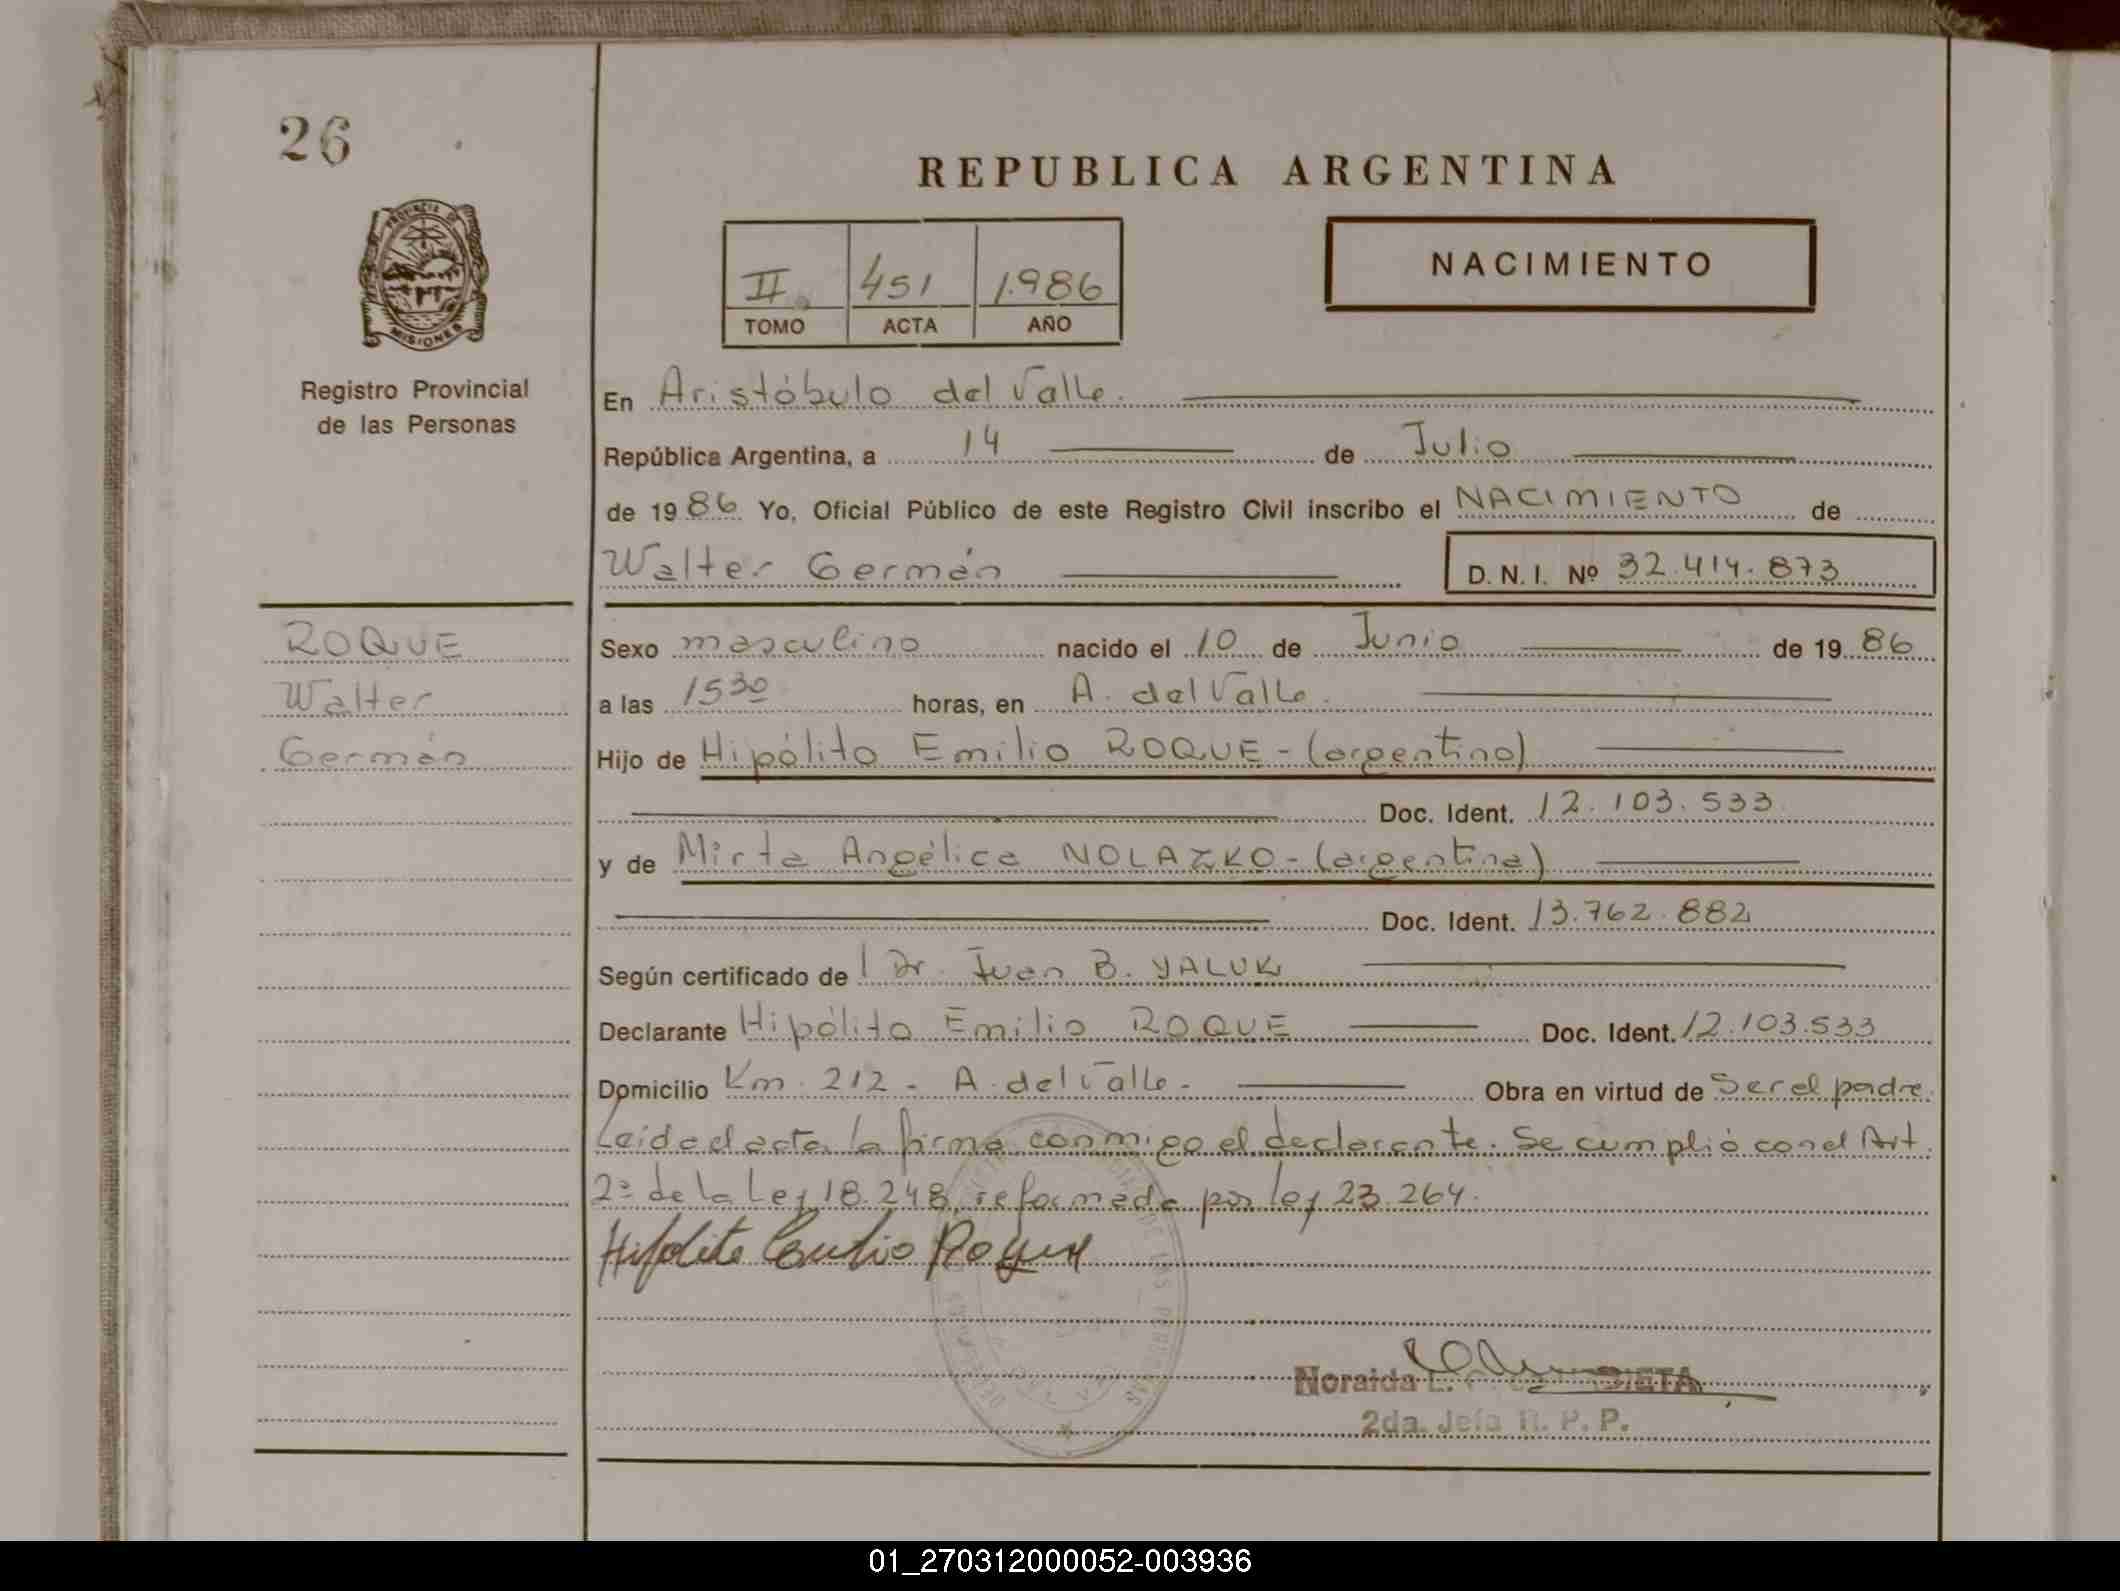 26
REPUBLICA ARGENTINA
PROVINCIA DE
MISIONES
Registro Provincial
de las Personas
II 451 1.986
TOMO ACTA AÑO
NACIMIENTO
En Aristóbulo del Valle.
República Argentina, a 14 de Julio
de 1986 Yo, Oficial Público de este Registro Civil inscribo el NACIMIENTO de
Walter Germán D. N. I. Nº 32.414.873
ROQUE
Walter
Germán
Sexo masculino nacido el 10 de Junio de 1986
a las 15 30 horas, en A. del Valle.
Hijo de Hipólito Emilio ROQUE - (argentino)
Doc. Ident. 12.103.533
y de Mirta Angélica NOLAZKO - (argentina)
Doc. Ident. 13.762.882
Según certificado de l Dr. Juan B. YALUK
Declarante Hipólito Emilio ROQUE Doc. Ident. 12.103.533
Domicilio Km. 212 - A. del Valle - Obra en virtud de Ser el padre.
Leída el acta la firma conmigo el declarante. Se cumplió con el Art.
2º de la Ley 18.248, reformada por ley 23.264.
Hipolito Emilio Roque
Noraida
2da. Jefa R. P. P.
01_270312000052-003936